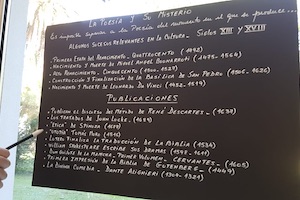 La Poesía y Su Misterio
Es imposible separar a la Poesía del en el que se produce...
Algunos Sucesos Relevantes en la Cultura. Siglos XIII y XVIII
- Primera Etapa del Renacimiento, Quattrocento (1492)
- Nacimiento y Muerte de Miguel Angel Buonarroti (1475-1564)
- Renacimiento, Cinquecento
- Construcción y Finalización de la Basílica de San Pedro (1506-1626)
- Nacimiento y Muerte de Leonardo Da Vinci (1452-1519)
Publicaciones
- Publican el Discurso del Método de René Descartes - (1637)
- Los tratados de John Locke - (1689)
- "Etica" de Spinoza (1677)
- "Utopía" Tomás Moro
- Lutero finaliza la traducción de la Biblia (1534)
- William Shakespeare escribe sus dramas
- Don Quijote de la Mancha - Primer Volumen - Cervantes - (1605)
- Primera Impresión de la Biblia de Gutenberg -
- La Divina Comedia - Dante Alighieri